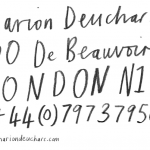 arion Deuchar
0 De Beauvoir
ONDON N1
44(0)7973795
ariondeuchars.com